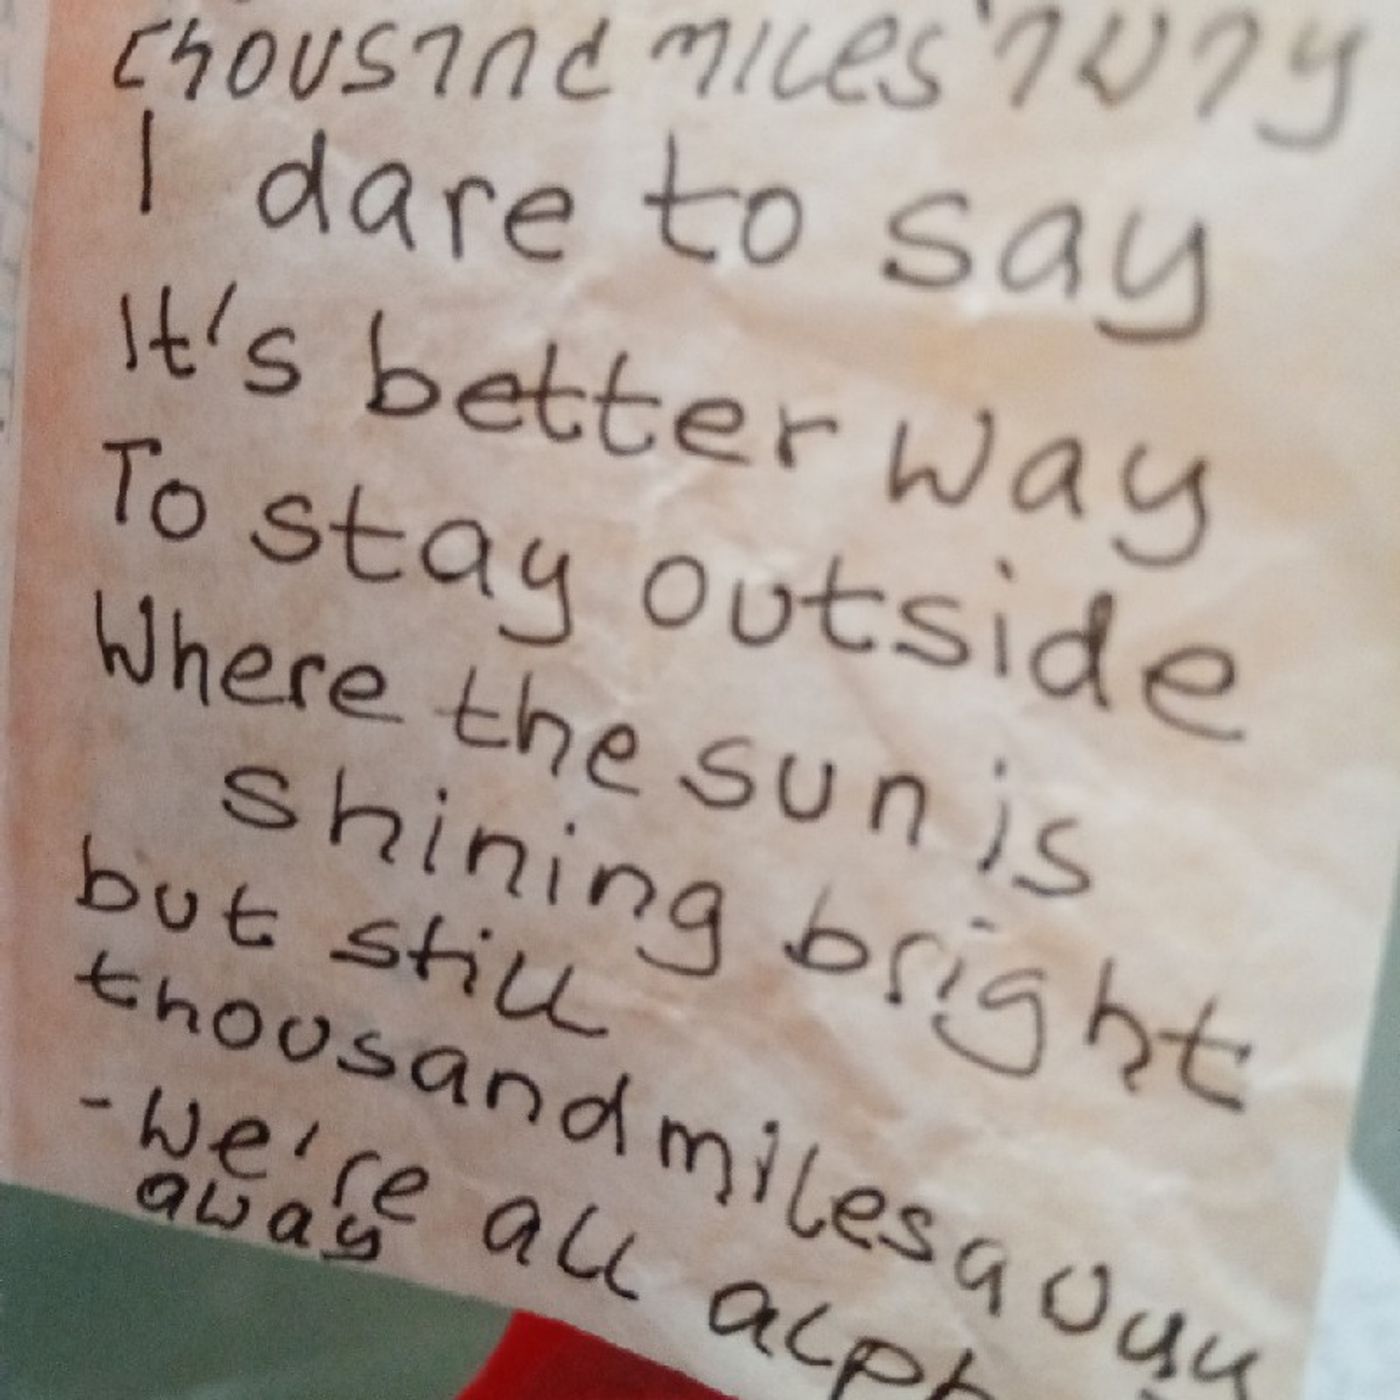 thousand miles away
I dare to say
It's better way
To stay outside
Where the sun is
shining bright
but still
thousand miles away
-We're all
away